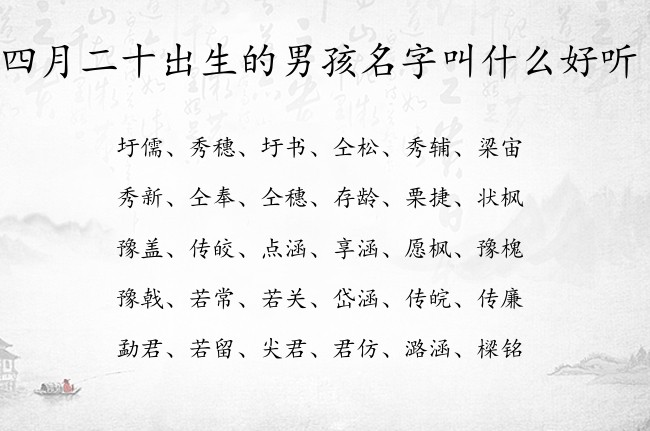 四月二十出生的男孩名字叫什么好听
圩儒、秀穗、圩书、仝松、秀辅、梁宙
秀新、仝奉、仝穗、存龄、栗捷、状枫
豫盖、传皎、点涵、享涵、愿枫、豫槐
豫戟、若常、若关、岱涵、传皖、传廉
勐君、若留、尖君、君仿、潞涵、樑铭